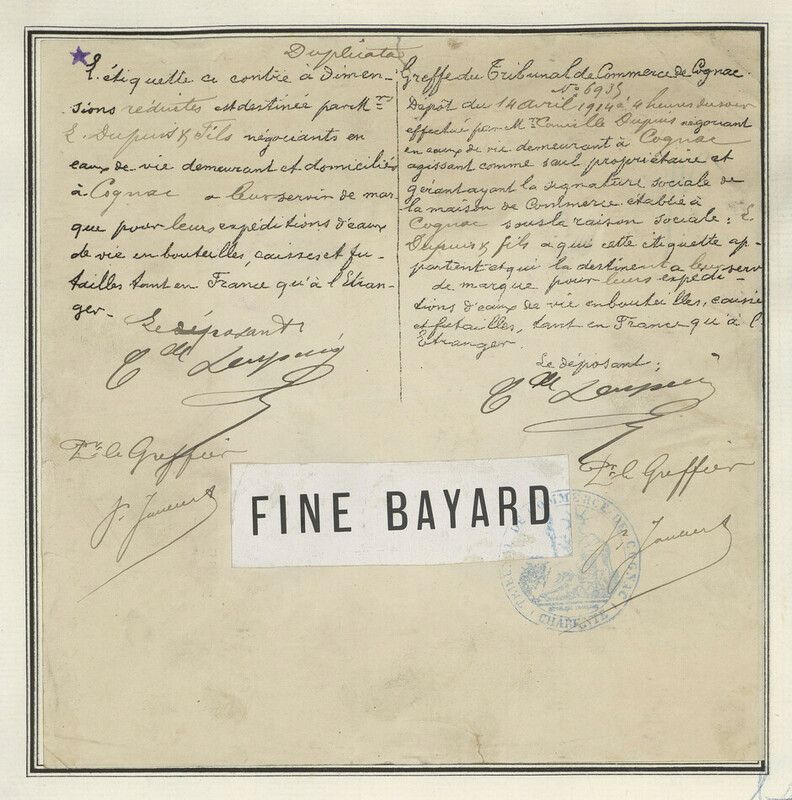 Duplicata
L'étiquette ci contre à dimen-
sions réduites est destinée par Mrs
E. Dupuis & Fils négociants en
eaux-de-vie demeurant et domiciliés
à Cognac a leur servir de mar
que pour leurs expéditions d'eaux
de vie en bouteilles, caisses et fu-
tailles tant en France qu'à l'Etran-
ger-
Le déposant
Clle Dupuis
Pr. le Greffier
Greffe du Tribunal de Commerce de Cognac.
No 6935
Dépôt du 14 avril 1914 à 4 heures du soir
effectué par Mr Camille Dupuis négociant
en eaux de vie demeurant à Cognac
agissant comme seul propriétaire et
gérant ayant la signature sociale de
la maison de Commerce établie à
Cognac sous la raison sociale : E
Dupuis & fils à qui cette étiquette ap-
partient et qui la destinent a leur servir
de marque pour leurs expédi-
tions d'eaux de vie en bouteilles, caisses
et futailles, tant en France qu'à l'
Etranger
Le déposant :
Clle Dupuis
Pr. le Greffier
FINE BAYARD
TRIBUNAL DE COMMERCE DE COGNAC
CHARENTE